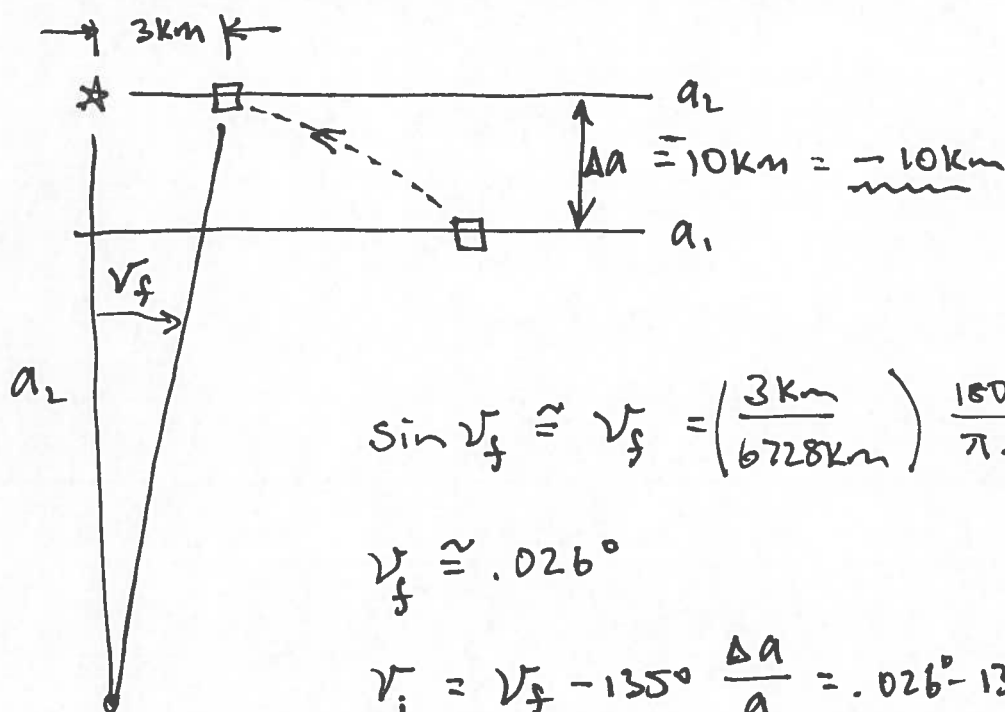 3km
a₂
Δa = 10km = -10km
a₁
ν_f
a₂
sin ν_f ≅ ν_f = (3km / 6728km) 180 / π.
ν_f ≅ .026°
ν_i = ν_f - 135° Δa / a = .026° - 13